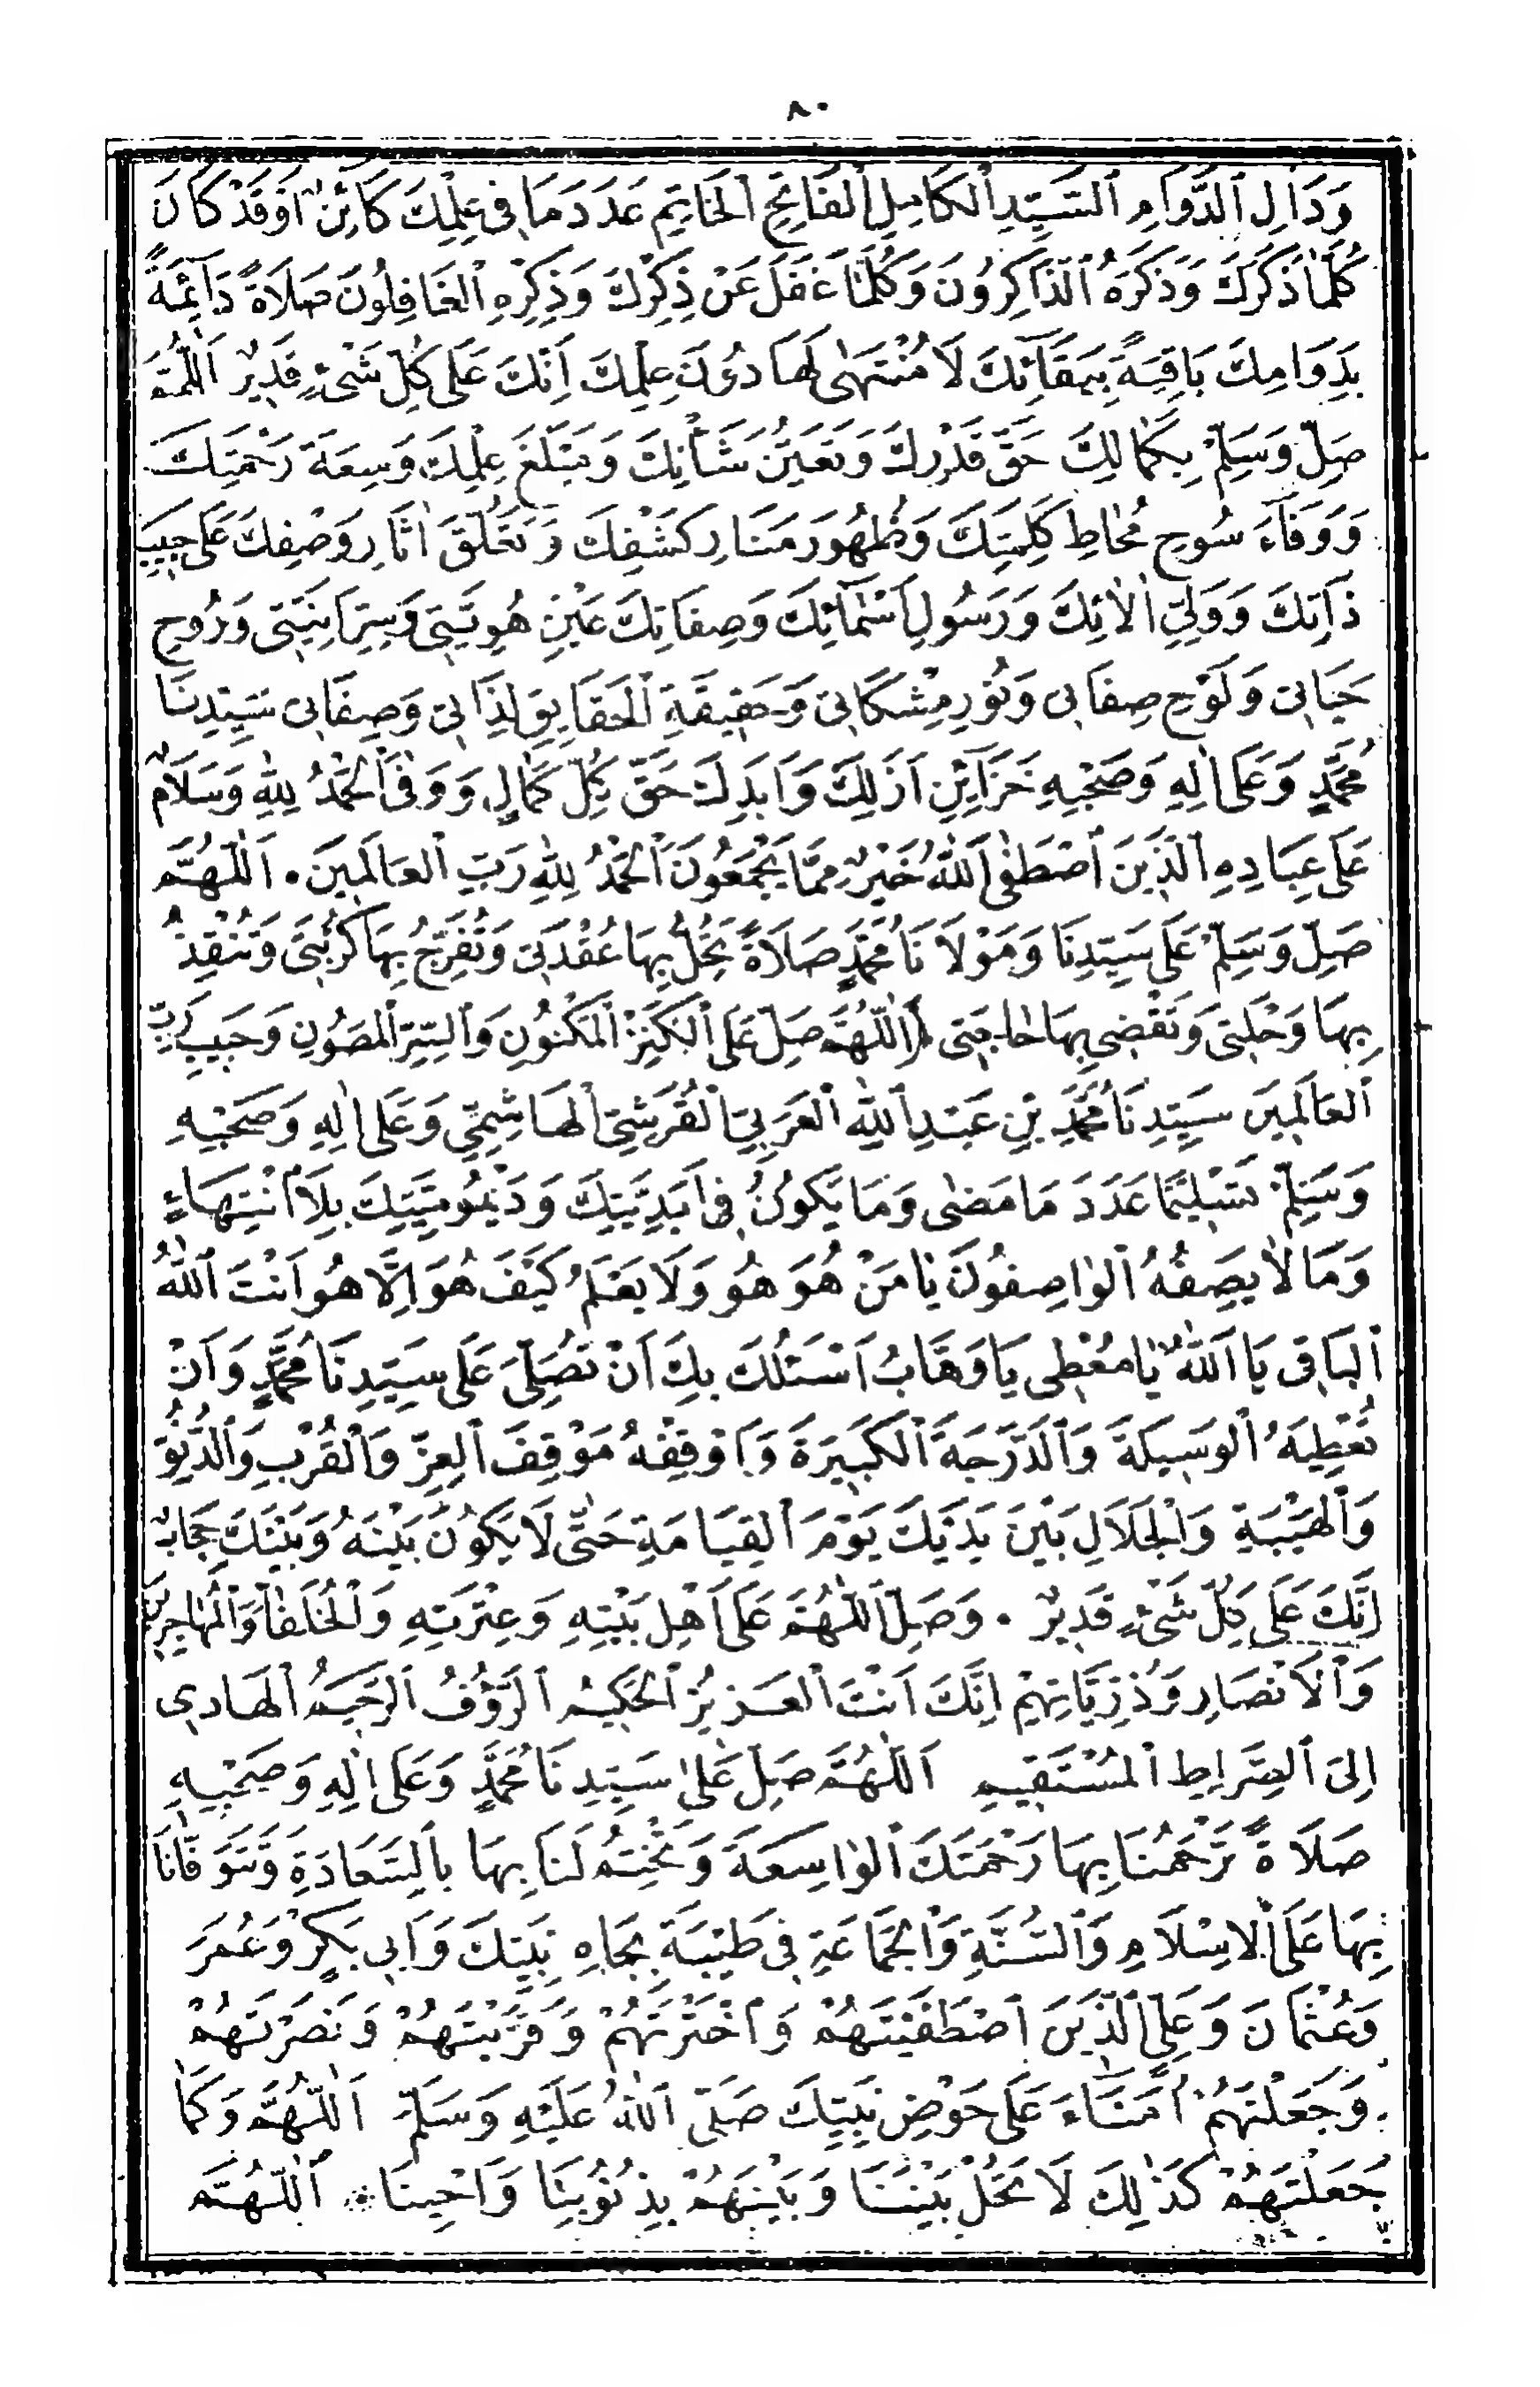 ٨٠
وَدَالِ ٱلدَّوَامِ ٱلسَّيِّدِ ٱلْكَامِلِ ٱلْفَاتِحِ ٱلْخَاتِمِ عَدَدَ مَا فِي عِلْمِكَ كَائِنٌ اَوْ قَدْ كَانَ
كُلَّمَا ذَكَرَكَ وَذَكَرَهُ ٱلذَّاكِرُونَ وَكُلَّمَا غَفَلَ عَنْ ذِكْرِكَ وَذِكْرِهِ ٱلْغَافِلُونَ صَلَاةً دَآئِمَةً
بِدَوَامِكَ بَاقِيَةً بِبَقَآئِكَ لَا مُنْتَهٰى لَهَا دُونَ عِلْمِكَ اِنَّكَ عَلَى كُلِّ شَىْءٍ قَدِيرٌ اَللّٰهُمَّ
صَلِّ وَسَلِّمْ بِكَمَالِكَ حَقَّ قَدْرِكَ وَتَعَيُّنَ شَأْنِكَ وَمَبْلَغَ عِلْمِكَ وَسِعَةَ رَحْمَتِكَ
وَوَفَآءَ سُوحِ مُحَاطِ كَلِمَتِكَ وَظُهُورَ مَنَارِ كَشْفِكَ وَتَعَلُّقَ اٰثَارِ وَصْفِكَ عَلَى حَبِيبِ
ذَاتِكَ وَوَلِيِّ اٰلَائِكَ وَرَسُولِ اَسْمَآئِكَ وَصِفَاتِكَ عَيْنِ هُوِيَّتِى وَسِرِّ اَنِيَّتِى وَرُوحِ
حَيَاتِى وَلَوْحِ صِفَاتِى وَنُورِ مِشْكَاتِى وَحَقِيقَةِ ٱلْحَقَايِقِ لِذَاتِى وَصِفَاتِى سَيِّدِنَا
مُحَمَّدٍ وَعَلَى اٰلِهِ وَصَحْبِهِ خَزَآئِنِ اَزَلِكَ وَاَبَدِكَ حَقَّ كُلِّ كَمَالٍ وَوَفٰى ٱلْحَمْدُ لِلّٰهِ وَسَلَامٌ
عَلَى عِبَادِهِ ٱلَّذِينَ ٱصْطَفٰى ٱللّٰهُ خَيْرٌ مِمَّا يَجْمَعُونَ ٱلْحَمْدُ لِلّٰهِ رَبِّ ٱلْعَالَمِينَ ٠ اَللّٰهُمَّ
صَلِّ وَسَلِّمْ عَلَى سَيِّدِنَا وَمَوْلَانَا مُحَمَّدٍ صَلَاةً تَحُلُّ بِهَا عُقْدَتِى وَتُفَرِّجُ بِهَا كُرْبَتِى وَتُنْقِذُ
بِهَا وَحْلَتِى وَتَقْضِى بِهَا حَاجَتِى اَللّٰهُمَّ صَلِّ عَلَى ٱلْكَنْزِ ٱلْمَكْنُونِ وَٱلسِّرِّ ٱلْمَصُونِ وَحَبِيبِ رَبِّ
ٱلْعَالَمِينَ سَيِّدِنَا مُحَمَّدِ بْنِ عَبْدِ ٱللّٰهِ ٱلْعَرَبِيِّ ٱلْقُرَشِيِّ ٱلْهَاشِمِيِّ وَعَلَى اٰلِهِ وَصَحْبِهِ
وَسَلِّمْ تَسْلِيمًا عَدَدَ مَا مَضٰى وَمَا يَكُونُ فِى اَبَدِيَّتِكَ وَدَيْمُومِيَّتِكَ بِلَا ٱنْتِهَاءٍ
وَمَا لَا يَصِفُهُ ٱلْوَاصِفُونَ يَا مَنْ هُوَ هُوَ وَلَا يَعْلَمُ كَيْفَ هُوَ اِلَّا هُوَ اَنْتَ ٱللّٰهُ
ٱلْبَاقِى يَا اَللّٰهُ يَا مُعْطِى يَا وَهَّابُ اَسْئَلُكَ بِكَ اَنْ تُصَلِّىَ عَلَى سَيِّدِنَا مُحَمَّدٍ وَاَنْ
تُعْطِيَهُ ٱلْوَسِيلَةَ وَٱلدَّرَجَةَ ٱلْكَبِيرَةَ وَاَوْقِفْهُ مَوْقِفَ ٱلْعِزِّ وَٱلْقُرْبِ وَٱلدُّنُوِّ
وَٱلْهَيْبَةِ وَٱلْجَلَالِ بَيْنَ يَدَيْكَ يَوْمَ ٱلْقِيَامَةِ حَتّٰى لَا يَكُونَ بَيْنَهُ وَبَيْنَكَ حِجَابٌ
اِنَّكَ عَلَى كُلِّ شَىْءٍ قَدِيرٌ ٠ وَصَلِّ ٱللّٰهُمَّ عَلَى اَهْلِ بَيْتِهِ وَعِتْرَتِهِ وَٱلْخُلَفَآءِ وَٱلْمُهَاجِرِينَ
وَٱلْاَنْصَارِ وَذُرِّيَّاتِهِمْ اِنَّكَ اَنْتَ ٱلْعَزِيزُ ٱلْحَكِيمُ ٱلرَّؤُفُ ٱلرَّحِيمُ ٱلْهَادِى
اِلَى ٱلصِّرَاطِ ٱلْمُسْتَقِيمِ اَللّٰهُمَّ صَلِّ عَلٰى سَيِّدِنَا مُحَمَّدٍ وَعَلَى اٰلِهِ وَصَحْبِهِ
صَلَاةً تَرْحَمُنَا بِهَا رَحْمَتَكَ ٱلْوَاسِعَةَ وَتَخْتِمُ لَنَا بِهَا بِٱلسَّعَادَةِ وَتَتَوَفَّانَا
بِهَا عَلَى ٱلْاِسْلَامِ وَٱلسُّنَّةِ وَٱلْجَمَاعَةِ فِى طَيْبَةَ بِجَاهِ نَبِيِّكَ وَاَبِى بَكْرٍ وَعُمَرَ
وَعُثْمَانَ وَعَلِيِّ ٱلَّذِينَ ٱصْطَفَيْتَهُمْ وَٱخْتَرْتَهُمْ وَقَرَّبْتَهُمْ وَنَصَرْتَهُمْ
وَجَعَلْتَهُمْ اُمَنَآءَ عَلَى حَوْضِ نَبِيِّكَ صَلَّى ٱللّٰهُ عَلَيْهِ وَسَلَّمَ اَللّٰهُمَّ وَكَمَا
جَعَلْتَهُمْ كَذٰلِكَ لَا تَحُلْ بَيْنَنَا وَبَيْنَهُمْ بِذُنُوبِنَا وَاَحْيِنَا ٱللّٰهُمَّ